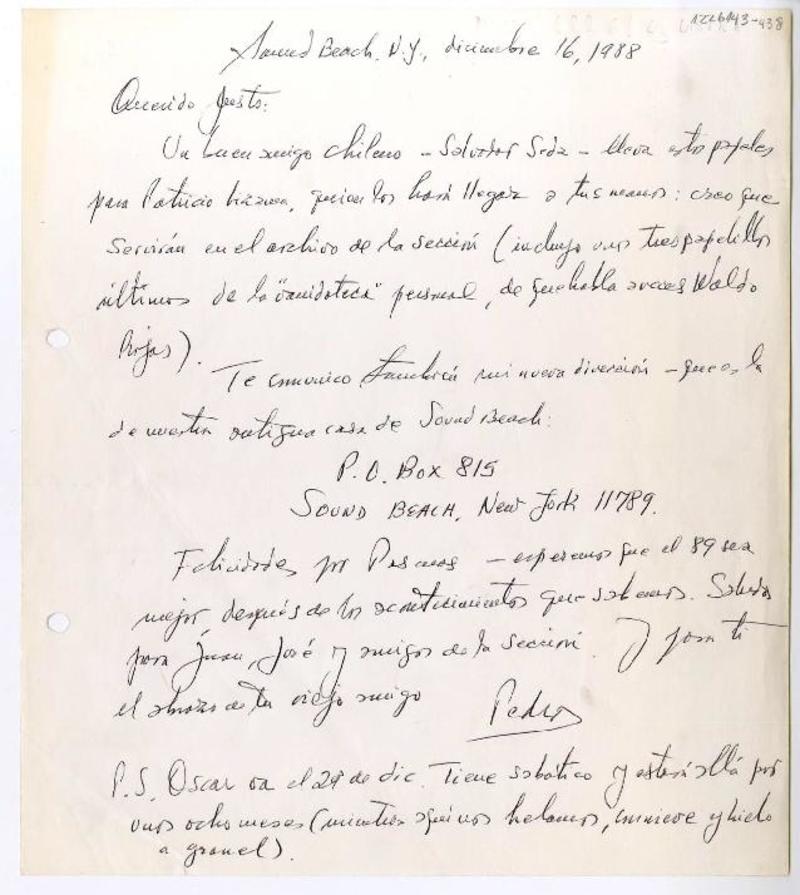 1226143-438
Sound Beach, N.Y., diciembre 16, 1988
Querido Justo:
Un buen amigo chileno - Salvador Seda - lleva estos papeles
para Patricio Lizama, quien los hará llegar a tus manos: creo que
servirán en el archivo de la sección (incluyo unos tres papelillos
últimos de la "vanidoteca" personal, de que habla a veces Waldo
Rojas).
Te comunico también mi nueva dirección - que es la
de nuestra antigua casa de Sound Beach:
P.O. Box 815
SOUND BEACH, New York 11789.
Felicidades por Pascuas - esperemos que el 89 sea
mejor, después de los acontecimientos que sabemos. Saludos
para Juan, José y amigos de la sección. Y para ti
el abrazo de tu viejo amigo
Pedro
P.S. Oscar va el 29 de dic. Tiene sabático y estará allá por
unos ocho meses (mientras aquí nos helamos, con nieve y hielo
a granel).